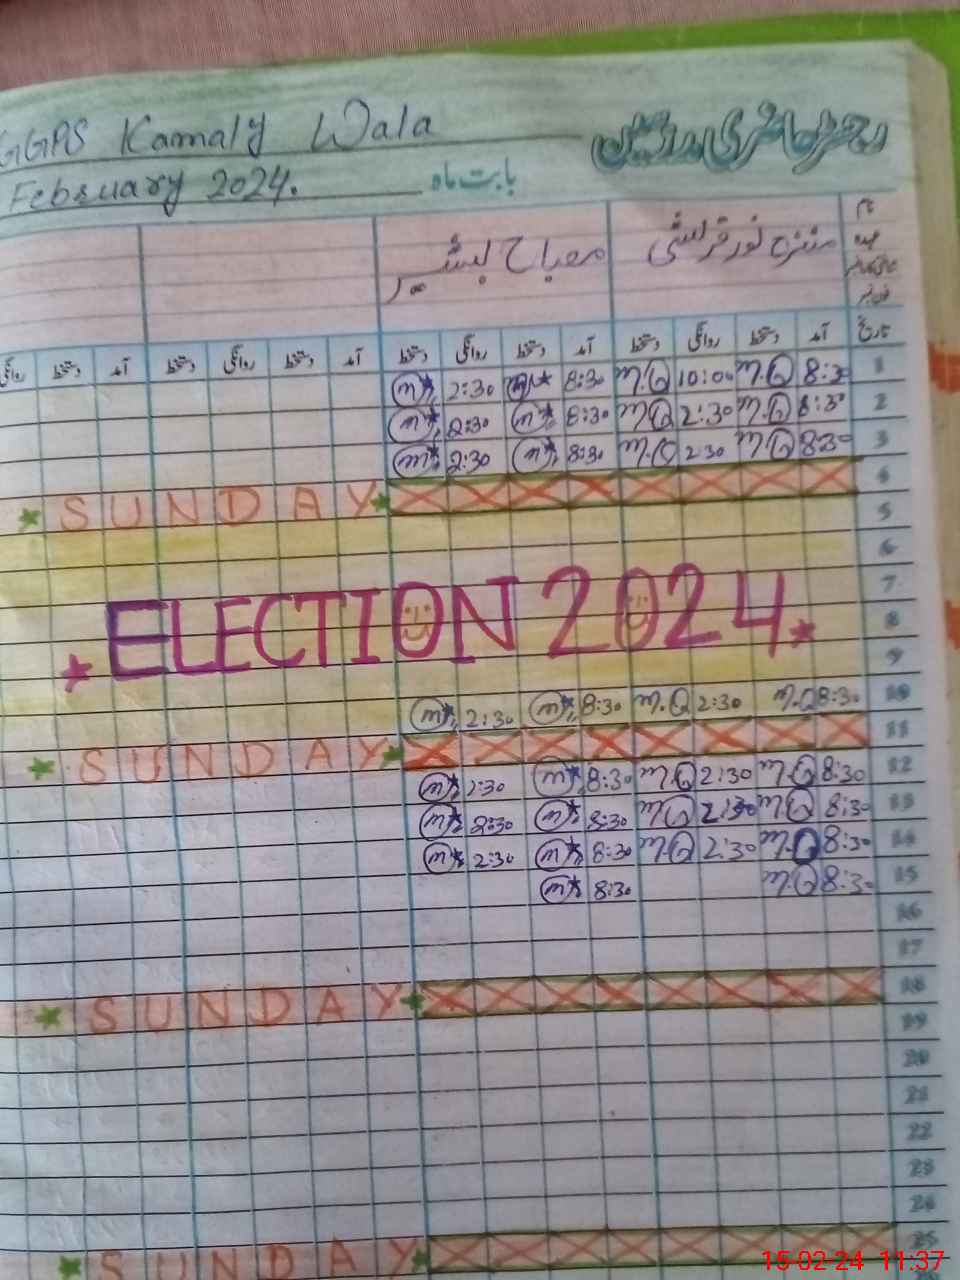 رجسٹر حاضری مدرسین
GGPS Kamaly Wala
بابت ماہ February 2024.
نام منزہ نور قریشی مصباح بشیر
عہدہ
تاریخ آمد دستخط روانگی دستخط آمد دستخط روانگی دستخط آمد دستخط روانگی دستخط آمد دستخط روانگی
1 8:30 M.Q 10:00 M.Q 8:30 m 2:30 m
2 8:30 M.Q 2:30 M.Q 8:30 m 2:30 m
3 8:30 M.Q 2:30 M.Q 8:30 m 2:30 m
4 SUNDAY
5
6
7
8 ELECTION 2024
9
10 8:30 M.Q 2:30 M.Q 8:30 m 2:30 m
11 SUNDAY
12 8:30 M.Q 2:30 M.Q 8:30 m 2:30 m
13 8:30 M.Q 2:30 M.Q 8:30 m 2:30 m
14 8:30 M.Q 2:30 M.Q 8:30 m 2:30 m
15 8:30 M.Q 8:30 m
16
17
18 SUNDAY
19
20
21
22
23
24
25 SUNDAY
15-02-24 11:37